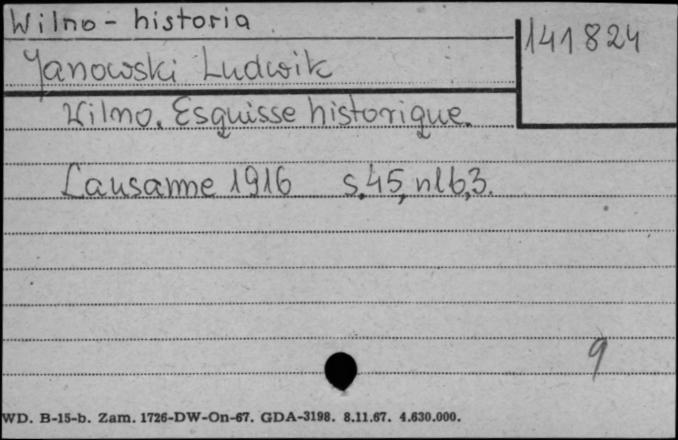 Wilno - historia
141824
Janowski Ludwik
Wilno. Esquisse historique.
Lausanne 1916 s.45, nlb,3.
9
WD. B-15-b. Zam. 1726-DW-On-67. GDA-3198. 8.11.67. 4.630.000.